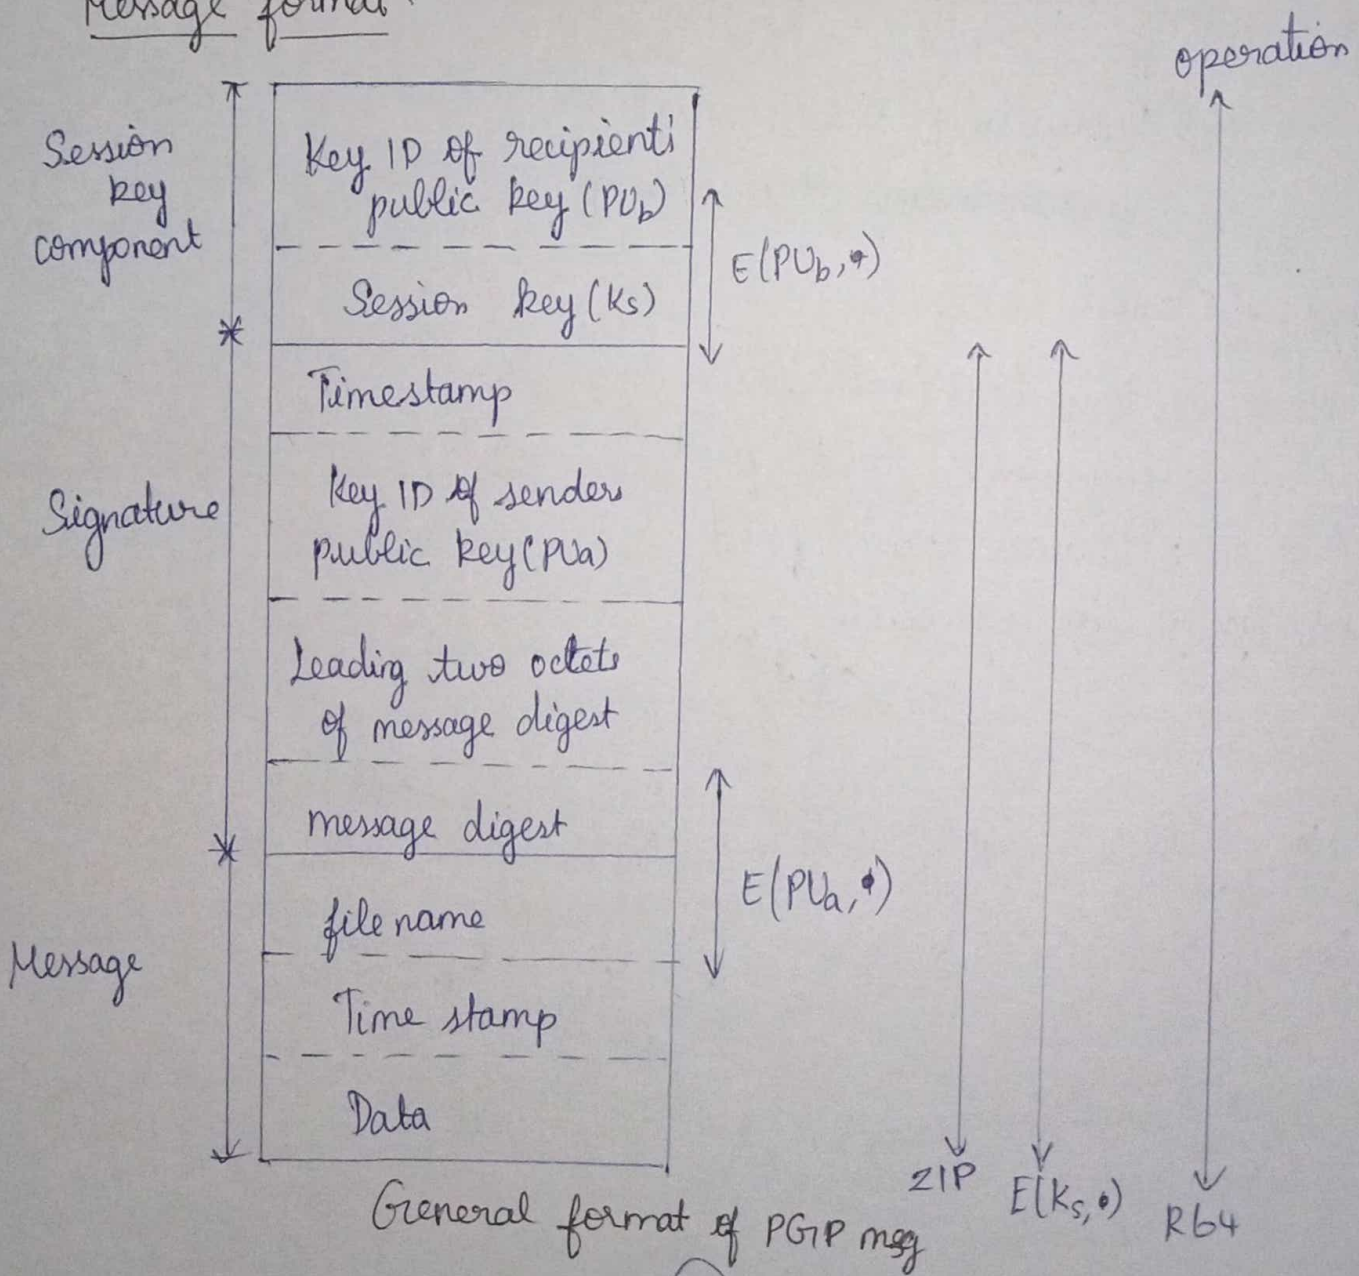 Message format
operation
Session
key
component
Key ID of recipienti
public key (PUb)
E(PUb, •)
Session key (Ks)
Timestamp
Signature
Key ID of senders
public key (PUa)
Leading two octets
of message digest
message digest
E(PUa, •)
file name
Message
Time stamp
Data
ZIP
E(Ks, •)
R64
General format of PGP msg